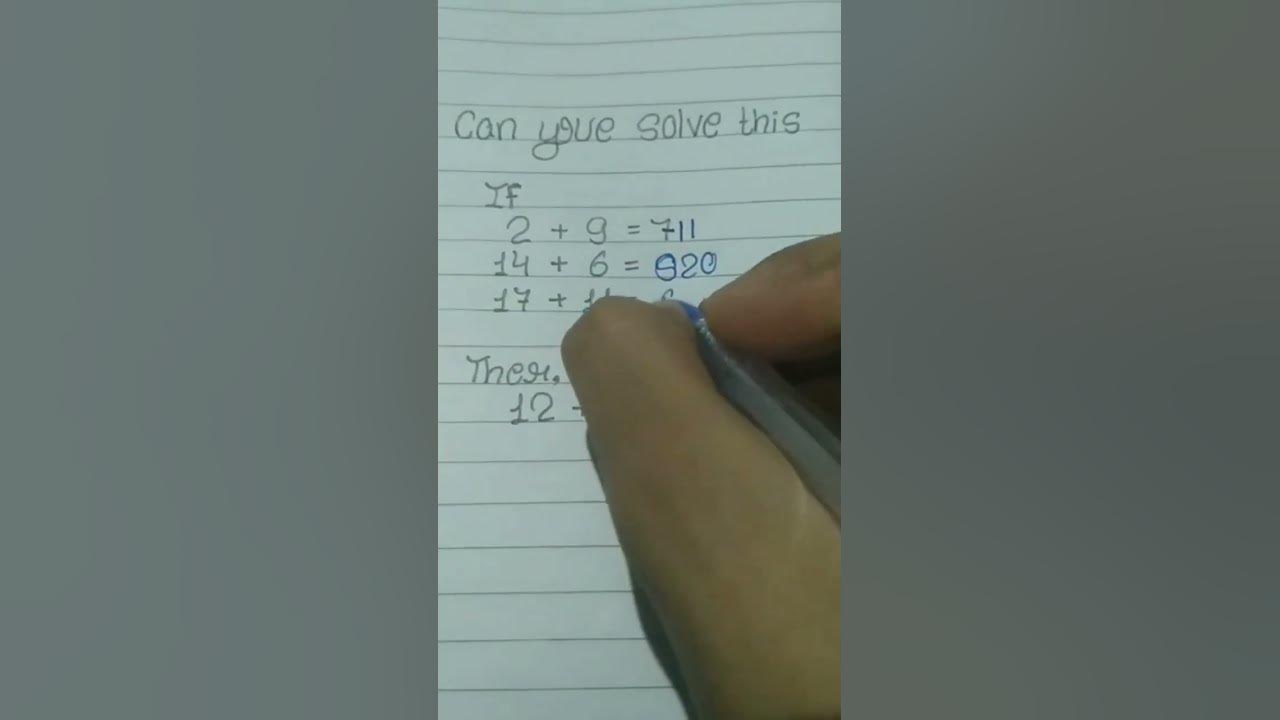 Can youe solve this
If
2 + 9 = 711
14 + 6 = 820
17 + 11 =
Then,
12 +